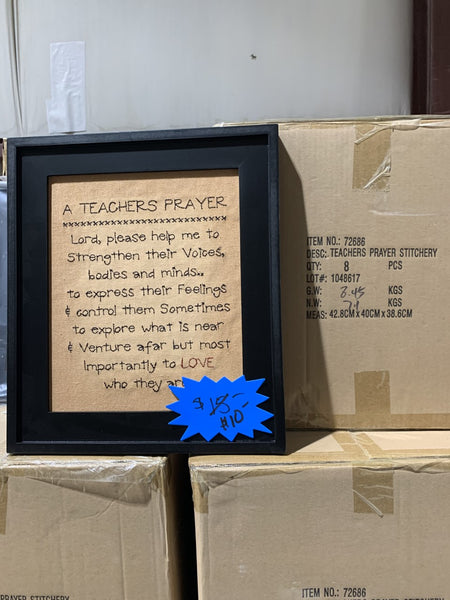 A TEACHERS PRAYER
Lord, please help me to
Strengthen their Voices,
bodies and minds..
to express their Feelings
& control them Sometimes
to explore what is near
& Venture afar but most
Importantly to LOVE
who they ar
$18-
$10-
ITEM NO.: 72686
DESC: TEACHERS PRAYER STITCHERY
QTY: 8 PCS
LOT#: 1048617
G.W: 8.45 KGS
N.W: 7.1 KGS
MEAS: 42.8CMx40CMx38.6CM
PRAYER STITCHERY
ITEM NO.: 72686